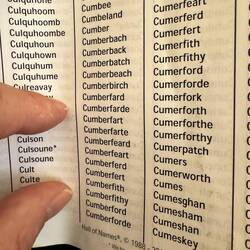 Culquhoom
Culquhoomb
Culquhoombe
Culquhoun
Culquhown
Culquhum
Culquhume
Culreavay
Culson
Culsoune*
Culsoune
Cult
Culte
Cumbee
Cumbeland
Cumber
Cumberbach
Cumberback
Cumberbatch
Cumberbeach
Cumberbirch
Cumberfard
Cumberfarde
Cumberfart
Cumberfarte
Cumberfeard
Cumberfeart
Cumberferd
Cumberfert
Cumberfith
Cumberfithy
Cumberford
Cumberforde
Cumerfeart
Cumerferd
Cumerfert
Cumerfith
Cumerfithy
Cumerford
Cumerforde
Cumerfork
Cumerforth
Cumerforthe
Cumerforthy
Cumerpatch
Cumers
Cumerworth
Cumes
Cumesghan
Cumesham
Cumeshan
Cumeskey
Hall of Names®, © 1988 - 20